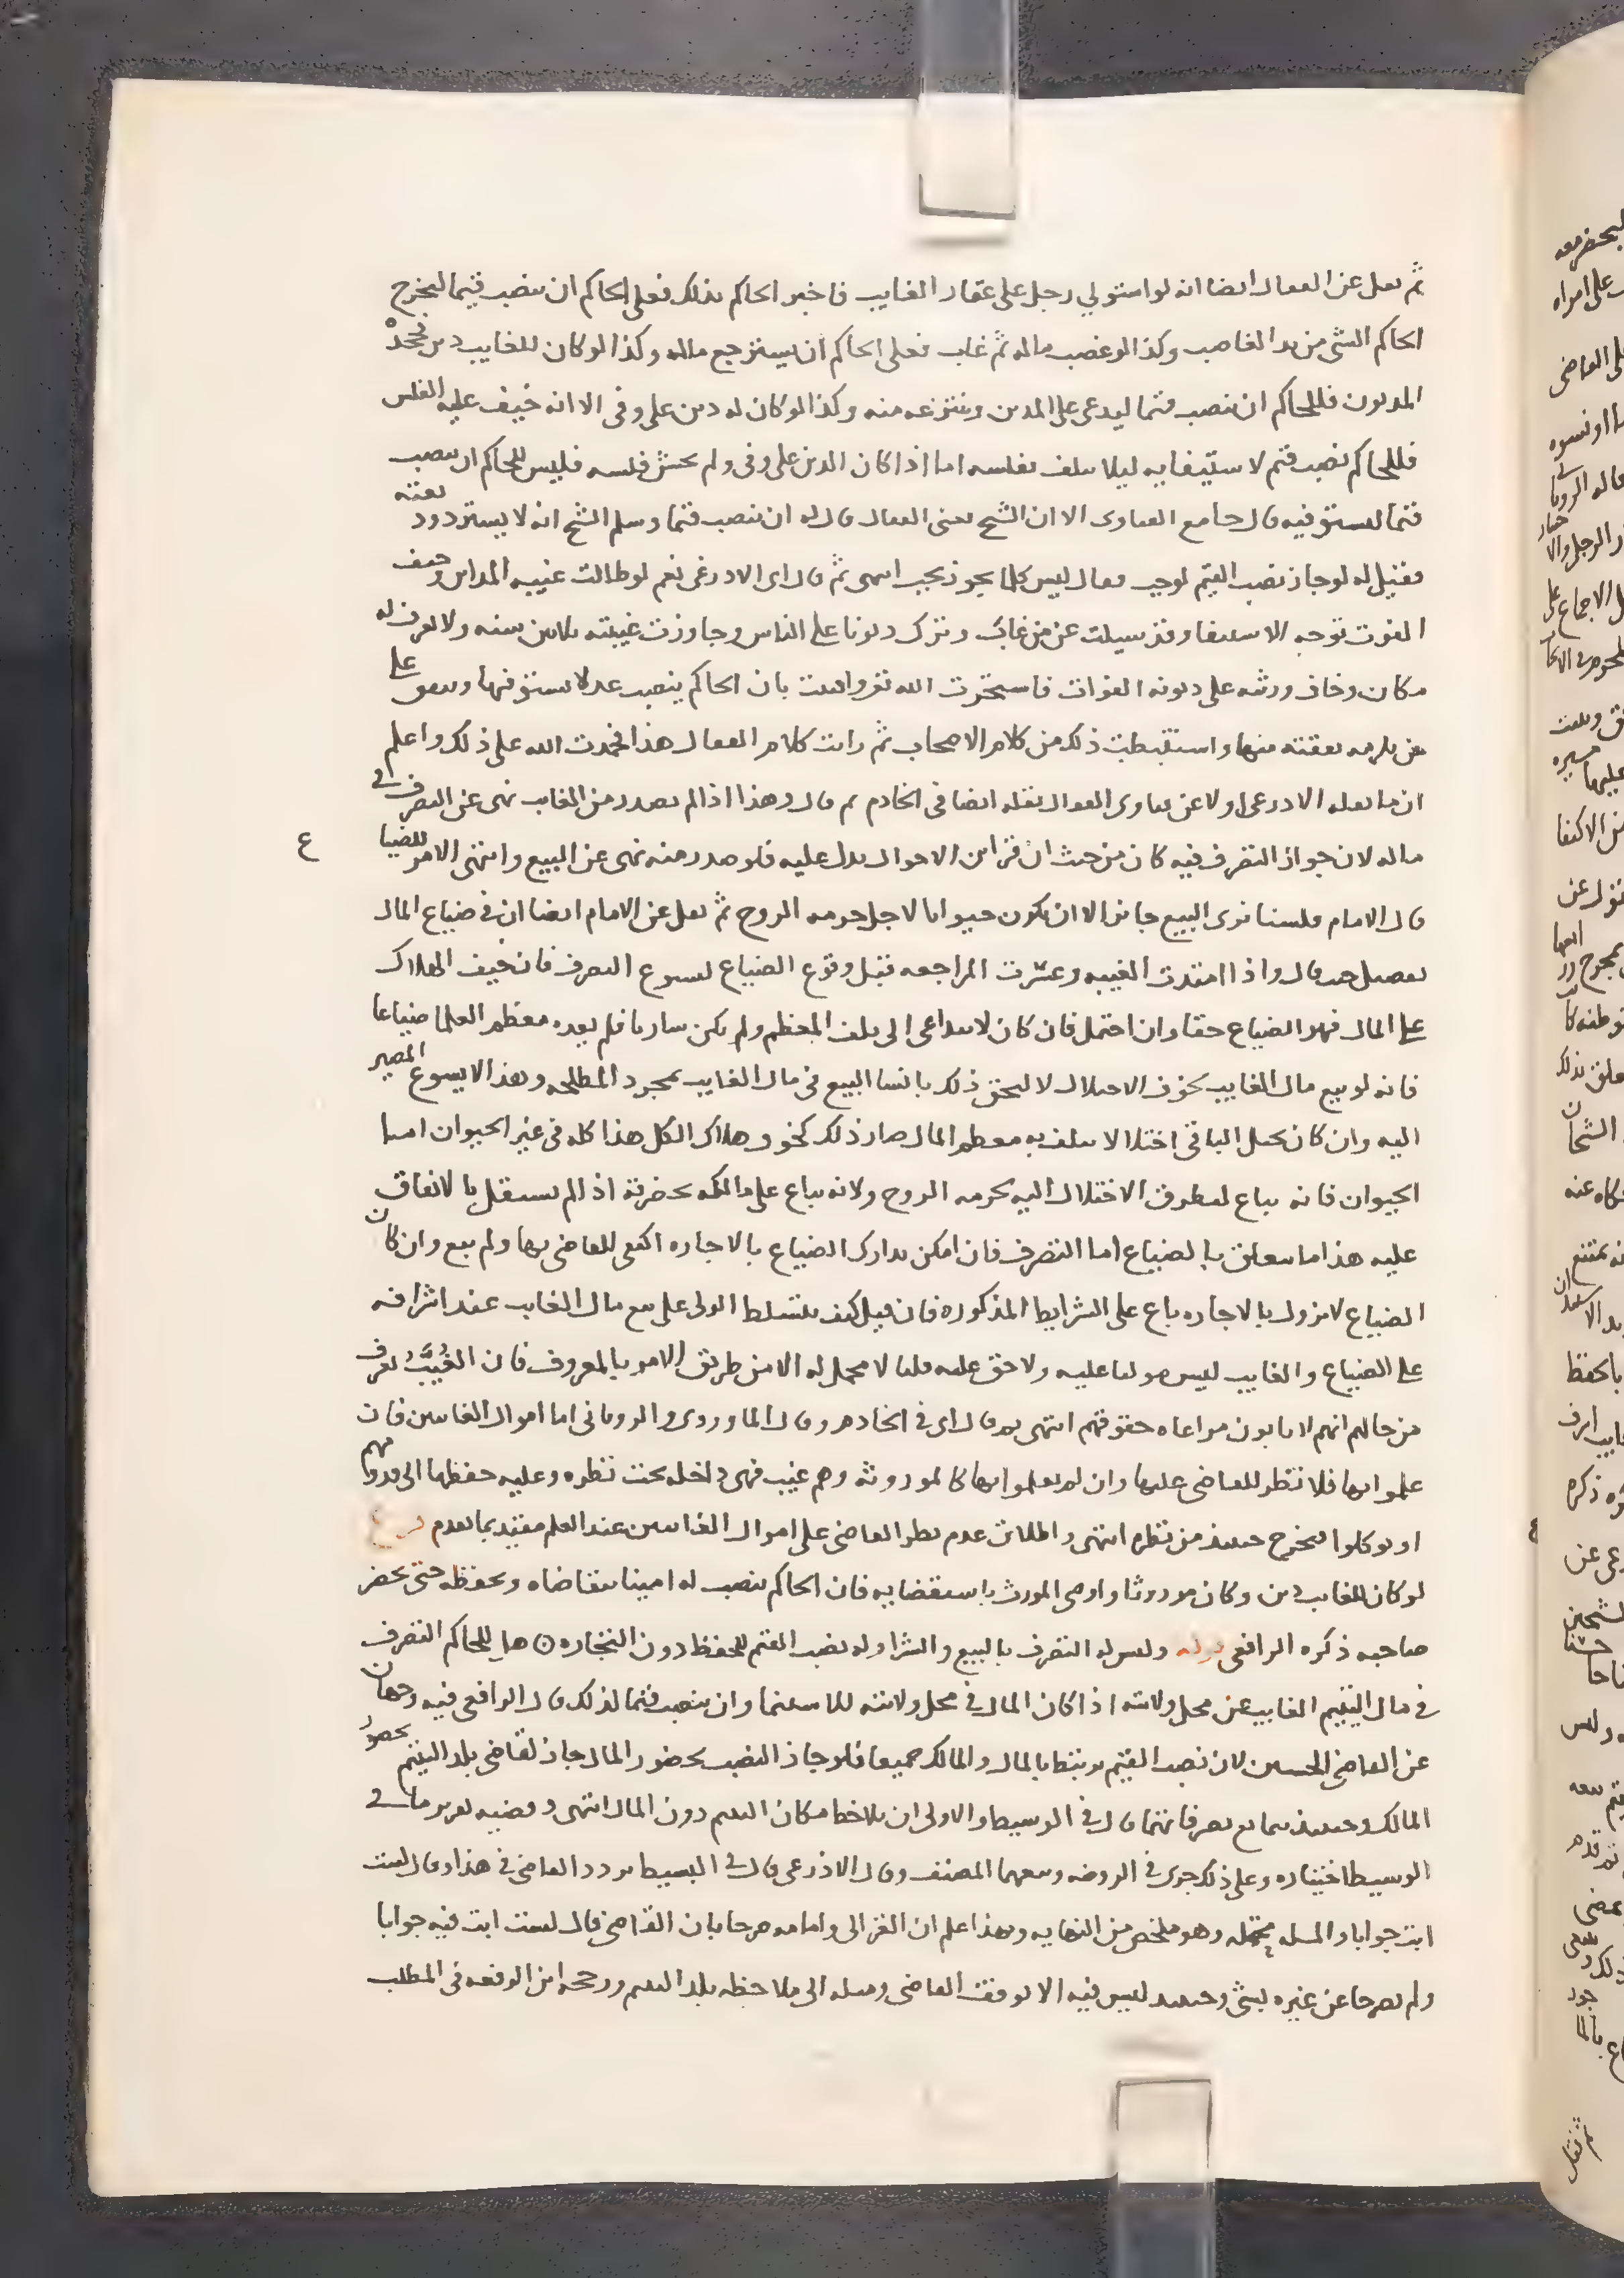 ثم نقل عن القفال ايضا انه لو استولي رجل على عقار الغايب فاخبر الحاكم بذلك فعلى الحاكم ان ينصب قيما ليخرج
الحاكم الشي من يد الغاصب وكذا لو غصب ماله ثم غاب فعلى الحاكم ان يسترجع ماله وكذا لو كان للغايب دين فجحده
المديون فللحاكم ان ينصب قيما ليدعى على المدين وينتزعه منه وكذا لو كان له دين على وفى الا انه خيف عليه الفلس
فللحاكم نصب قيم لاستيفايه ليلا يتلف بفلسه اما اذا كان الدين على وفى ولم يخش فلسه فليس للحاكم ان ينصب
قيما ليستوفيه قال جامع الفتاوى الا ان الشيخ يعنى القفال قال له ان ينصب قيما وسلم الشيخ انه لا يسترد وديعته
فقيل له لو جاز نصب القيم لوجب فقال ليس كلما يجوز يجب انتهى ثم قال اى الاذرعى نعم لو طالت غيبه المداين وخيف
الفوت توجه الاستيفا وقد سيلت عن من غاب وترك ديونا على الناس وجاوزت غيبته ثلاثين سنه ولا يعرف له
مكان وخاف ورثته على ديونه الفوات فاستخرت الله تع وافتيت بان الحاكم ينصب عدلا يستوفيها وينفق على
من يلزمه نفقته منها واستنبطت ذلك من كلام الاصحاب ثم رايت كلام القفال هذا فحمدت الله على ذلك واعلم
ان ما نقله الاذرعى اولا عن فتاوى القفال نقله ايضا فى الخادم ثم قال وهذا اذا لم يصدر من الغايب نهى عن التصرف في
ماله لان جواز التصرف فيه كان من حيث ان قراين الاحوال تدل عليه فلو صدر منه نهى عن البيع وانتهى الامر للضياع
قال الامام فلسنا نرى البيع جايزا الا ان يكون حيوانا لاجل حرمه الروح ثم نقل عن الامام ايضا ان في ضياع المال
تفصيل حيث قال واذا امتدت الغيبه وعسرت المراجعه قبل وقوع الضياع يسوغ التصرف فان خيف الهلاك
على المال فهو الضياع حقا وان احتمل فان كان لا يتداعى الى تلف المعظم ولم يكن ساريا فلم يعده معظم العلما ضياعا
فانه لو بيع مال الغايب بخوف الاختلال لالتحق ذلك بانشا البيع فى مال الغايب بمجرد المصلحه وهذا لا يسوغ المصير
اليه وان كان يختل الباقى اختلالا يتلف به معظم المال صار ذلك كخوف هلاك الكل هذا كله فى غير الحيوان اما
الحيوان فانه يباع لتطرق الاختلال اليه لحرمه الروح ولانه يباع على مالكه بحضرته اذا لم يستقل بالانفاق
عليه هذا ما يتعلق بالضياع اما التصرف فان امكن تدارك الضياع بالاجاره اكتفى القاضى بها ولم يبع وان كان
الضياع لا يزول بالاجاره باع على الشرايط المذكوره فان قيل كيف يتسلط الوالى على بيع مال الغايب عند اشرافه
على الضياع والغايب ليس موليا عليه ولا حق عليه قلنا لا محمل له الا من طريق الامر بالمعروف فان الغُيَّب يعرف
من حالهم انهم لا يابون مراعاه حقوقهم انتهى ثم قال اى في الخادم وقال الماوردى والرويانى اما اموال الغايبين فان
علموا بها فلا نظر للقاضى عليها وان لم يعلموا بها كالموروثه وهم غيب فهى داخله تحت نظره وعليه حفظها الى قدومهم
او يوكلوا فتخرج حينيذ من نظره انتهى واطلاق عدم نظر القاضى على اموال الغايبين عند العلم مقيد بما تقدم فرع
لو كان للغايب دين وكان موروثا واوصى المورث باستقضايه فان الحاكم ينصب له امينا يتقاضاه ويحفظه حتى يحضر
صاحبه ذكره الرافعى قوله وليس له التصرف بالبيع والشرا وله نصب القيم للحفظ دون التجاره ن هل للحاكم التصرف
فى مال اليتيم الغايب عن محل ولايته اذا كان المال في محل ولايته للاستنما وان ينصب قيما لذلك قال الرافعى فيه وجهان
عن القاضى الحسين لان نصب القيم يرتبط بالمال والمالك جميعا فلو جاز النصب بحضور المال جاز لقاضى بلد اليتيم بحضور
المالك وحينيذ يتمانع تصرفا قيمها قال في الوسيط والاولى ان يلاحظ مكان اليتيم دون المال انتهى وقضيه تعزيز ما في
الوسيط اختياره وعلى ذلك جرى في الروضه وتبعهما المصنف وقال الاذرعى قال في البسيط تردد القاضى في هذا وقال لست
ابت جوابا والمسله محتمله وهو ملخص من النهايه وبهذا علم ان الغزالى وامامه صرحا بان القاضى قال لست ابت فيه جوابا
ولم يصرحا عن غيره بشى وحينيذ ليس فيه الا توقف القاضى وميله الى ملاحظه بلد اليتيم ورجحه ابن الرفعه فى المطلب